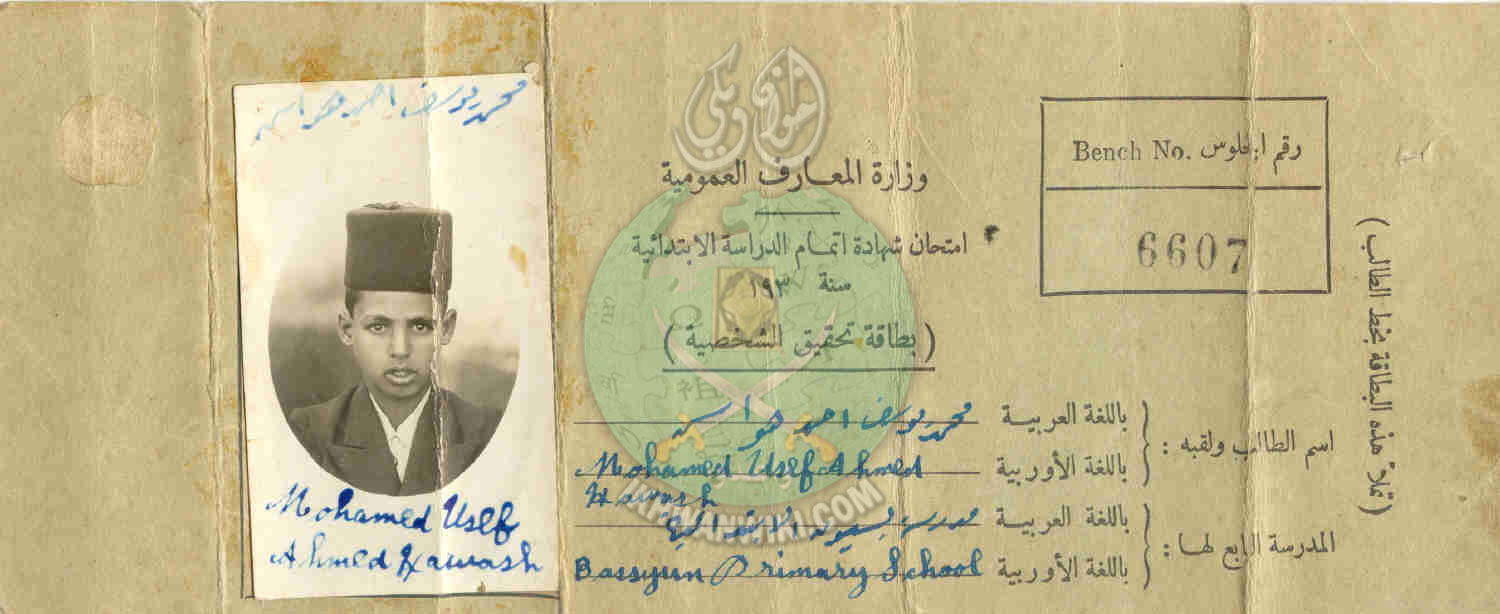 محمد يوسف احمد هواش
Mohamed Usef
Ahmed Hawash
إخوان ويكي
وزارة المعارف العمومية
امتحان شهادة اتمام الدراسة الابتدائية
سنة ١٩٣
( بطاقة تحقيق الشخصية )
رقم الجلوس Bench No.
6607
( تملأ هذه البطاقة بخط الطالب )
اسم الطالب ولقبه :
باللغة العربية محمد يوسف احمد هواش
باللغة الأوربية Mohamed Usef Ahmed
Hawash
المدرسة التابع لها :
باللغة العربية مدرسة بسيون الابتدائية
باللغة الأوربية Bassyun Primary School
IKHWANWIKI.COM